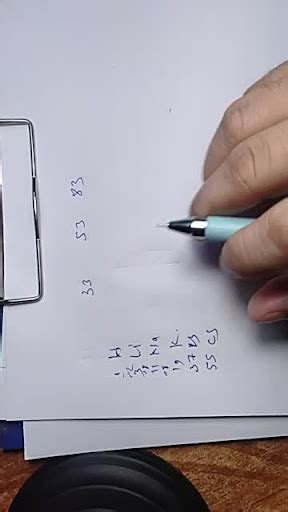 33 53 83
1 H
3 Li
11 Na
19 K
37 Rb
55 Cs